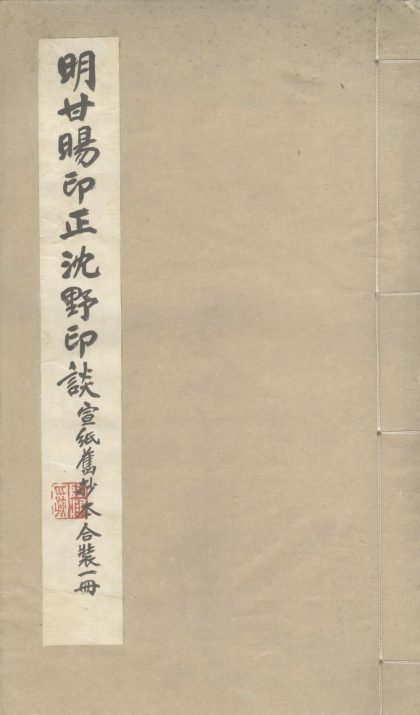 明甘暘印正沈野印談宣紙舊抄本合裝一冊